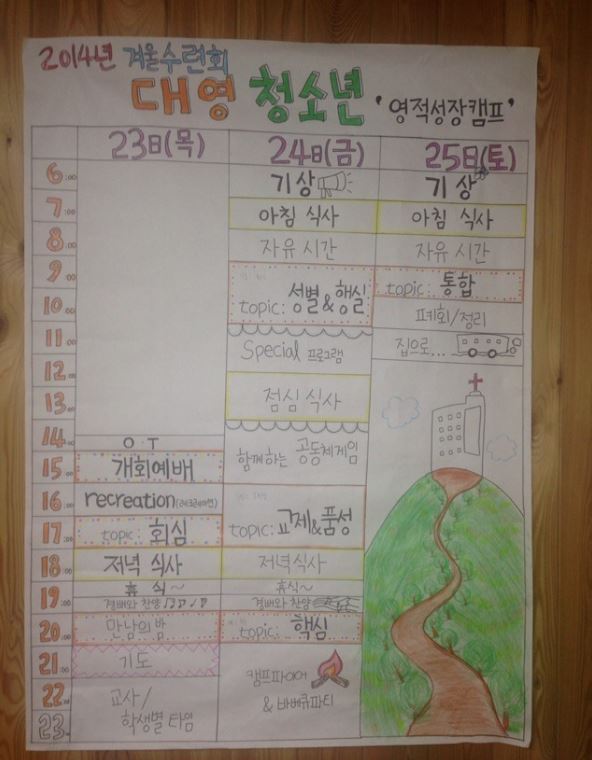 2014년 겨울수련회
대영 청소년 '영적성장캠프'
23日(목) 24日(금) 25日(토)
6:00 기상 기상
7:00 아침 식사 아침 식사
8:00 자유시간 자유시간
9:00 topic: 통합
10:00 topic: 성별&행실 폐회/정리
11:00 Special 프로그램 집으로...
12:00
13:00 점심 식사
14:00 O.T
15:00 개회예배 함께하는 공동체게임
16:00 recreation(레크레이션)
17:00 topic: 회심 topic: 교제&품성
18:00 저녁 식사 저녁식사
19:00 휴식~ 휴식~
경배와 찬양 경배와 찬양
20:00 만남의 밤 topic: 핵심
21:00 기도 캠프파이어
22:00 교사/ & 바베큐파티
23:00 학생별 타임